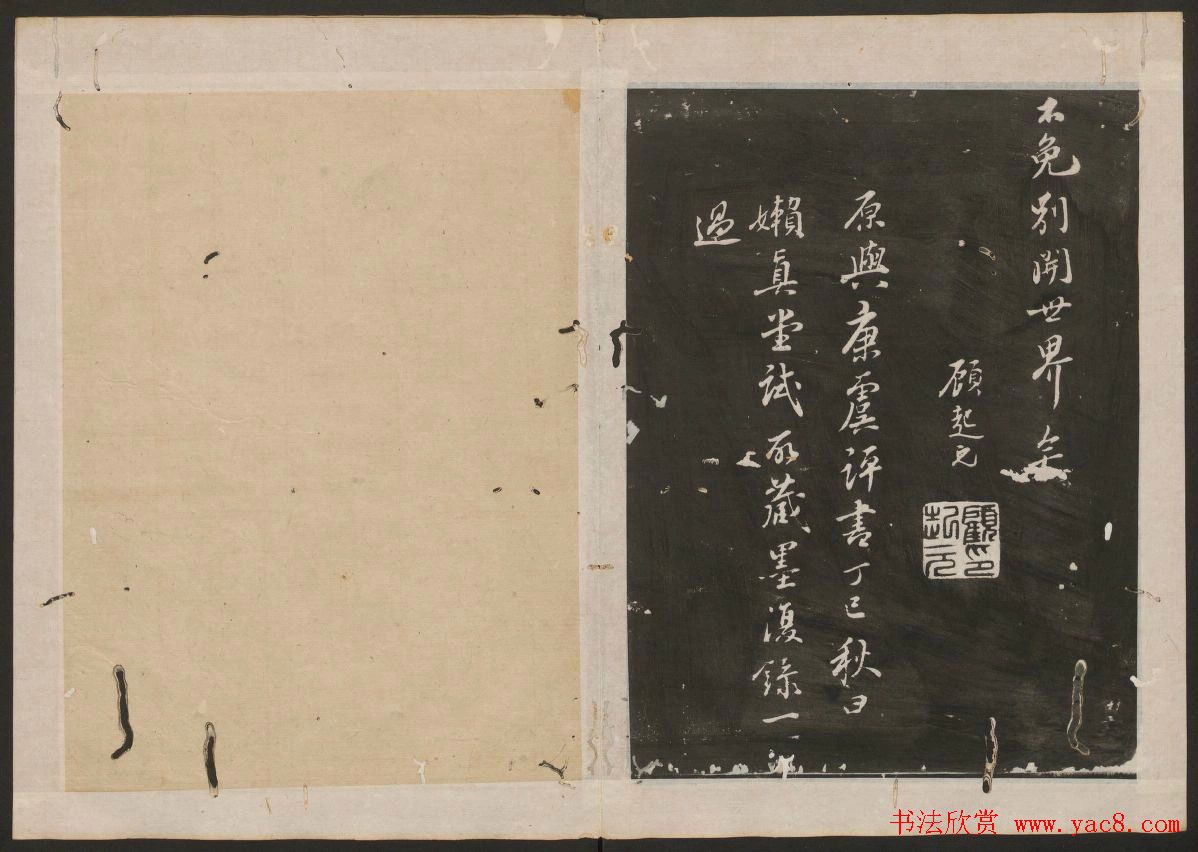 不免别開世界矣
顧起元
顧起元印
原與康虞評書丁巳秋日
嬾真堂試所藏墨漫錄一
過
书法欣赏 www.yac8.com